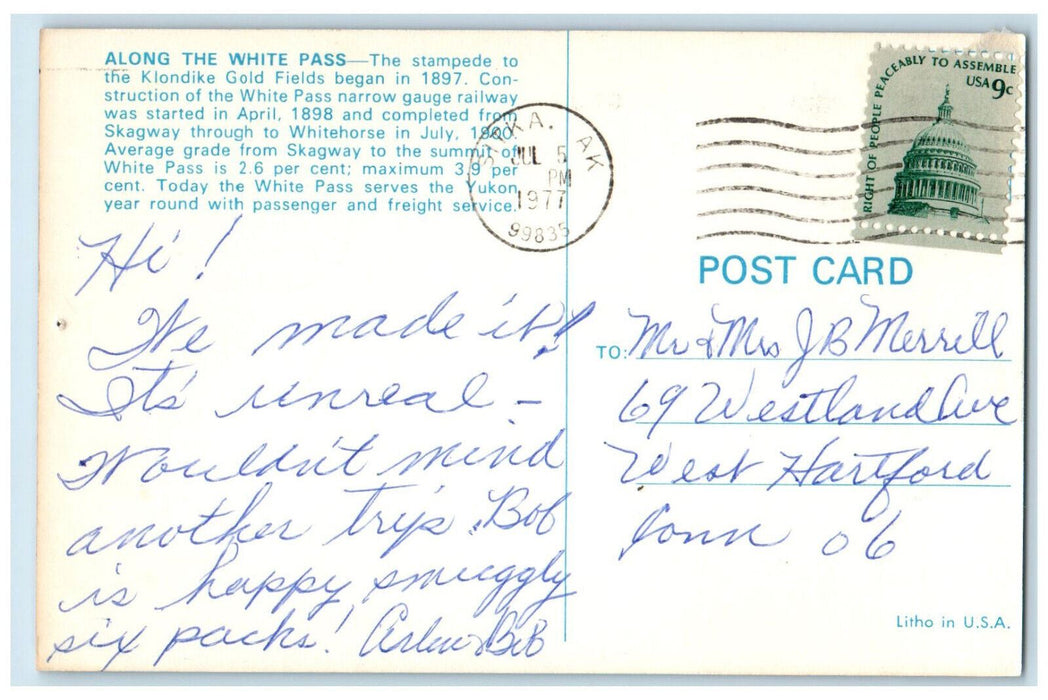 ALONG THE WHITE PASS—The stampede to
the Klondike Gold Fields began in 1897. Con-
struction of the White Pass narrow gauge railway
was started in April, 1898 and completed from
Skagway through to Whitehorse in July, 1900.
Average grade from Skagway to the summit of
White Pass is 2.6 per cent; maximum 3.9 per
cent. Today the White Pass serves the Yukon
year round with passenger and freight service.
SITKA, AK
JUL 5
PM
1977
99835
RIGHT OF PEOPLE PEACEABLY TO ASSEMBLE
USA 9c
Hi!
We made it!
It's unreal -
Wouldn't mind
another trip. Bob
is happy smuggly
six packs!
POST CARD
TO: Mr & Mrs J B Merrill
69 Westland Ave
West Hartford
Conn 06
Litho in U.S.A.